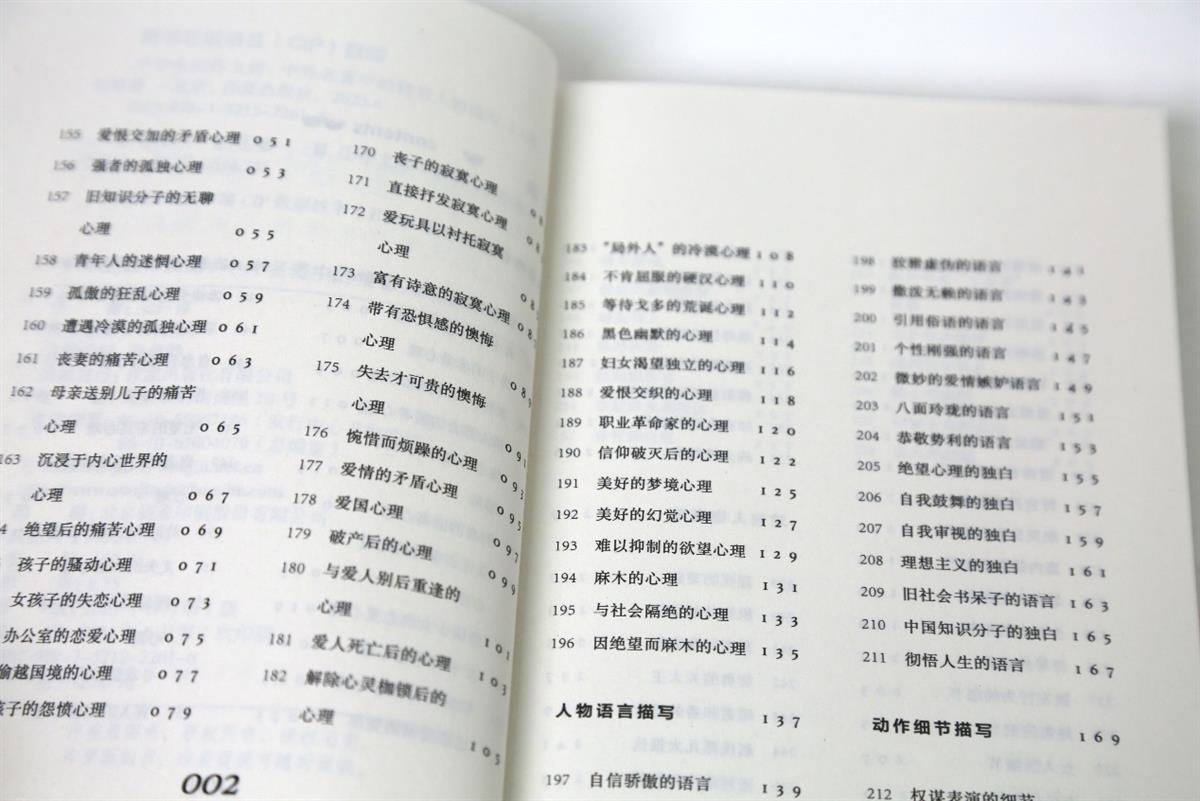 155 爱恨交加的矛盾心理 051
156 强者的孤独心理 053
157 旧知识分子的无聊
心理 055
158 青年人的迷惘心理 057
159 孤傲的狂乱心理 059
160 遭遇冷漠的孤独心理 061
161 丧妻的痛苦心理 063
162 母亲送别儿子的痛苦
心理 065
163 沉浸于内心世界的
心理 067
绝望后的痛苦心理 069
孩子的骚动心理 071
女孩子的失恋心理 073
办公室的恋爱心理 075
偷越国境的心理 077
孩子的怨愤心理 079
002
170 丧子的寂寞心理
171 直接抒发寂寞心理
172 爱玩具以衬托寂寞
心理
173 富有诗意的寂寞心理
174 带有恐惧感的懊悔
心理
175 失去才可贵的懊悔
心理
176 惋惜而烦躁的心理 091
177 爱情的矛盾心理 093
178 爱国心理 095
179 破产后的心理 097
180 与爱人别后重逢的 099
心理
181 爱人死亡后的心理 101
182 解除心灵枷锁后的 103
心理
105
183 “局外人”的冷漠心理 108
184 不肯屈服的硬汉心理 110
185 等待戈多的荒诞心理 112
186 黑色幽默的心理 114
187 妇女渴望独立的心理 116
188 爱恨交织的心理 118
189 职业革命家的心理 120
190 信仰破灭后的心理 122
191 美好的梦境心理 125
192 美好的幻觉心理 127
193 难以抑制的欲望心理 129
194 麻木的心理 131
195 与社会隔绝的心理 133
196 因绝望而麻木的心理 135
人物语言描写 137
197 自信骄傲的语言 139
198 狡猾虚伪的语言 143
199 撒泼无赖的语言 143
200 引用俗语的语言 145
201 个性刚强的语言 147
202 微妙的爱情嫉妒语言 149
203 八面玲珑的语言 151
204 恭敬势利的语言 153
205 绝望心理的独白 155
206 自我鼓舞的独白 157
207 自我审视的独白 159
208 理想主义的独白 161
209 旧社会书呆子的语言 163
210 中国知识分子的独白 165
211 彻悟人生的语言 167
动作细节描写 169
212 权谋表演的细节